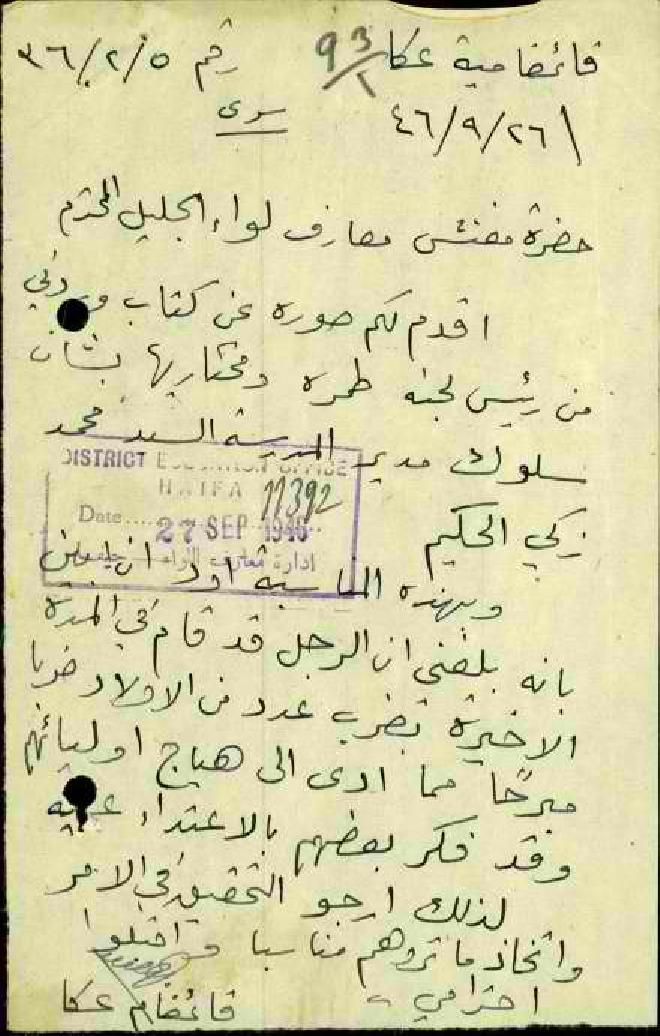 قائمقامية عكا ٩٣/١ رقم ٣٦/٢/٥
سرى
٤٦/٩/٢٦
حضرة مفتش معارف لواء الجليل المحترم
اقدم لكم صوره عن كتاب وردني
من رئيس لجنة طمره ومختاريها بشان
سلوك مدير المدرسة السيد محمد
زكي الحكيم
DISTRICT EDUCATION OFFICE
HAIFA 11392
Date 27 SEP 1946
ادارة معارف اللواء حيفا
وبهذه المناسبة اود ان ابين
بانه بلغني ان الرجل قد قام في المدة
الاخيرة بضرب عدد من الاولاد ضربا
مبرحًا مما ادى الى هياج اوليائهم
وقد فكر بعضهم بالاعتداء عليه
لذلك ارجو التحقيق في الامر
واتخاذ ما ترونه مناسبا واقبلوا
احترامي
قائمقام عكا